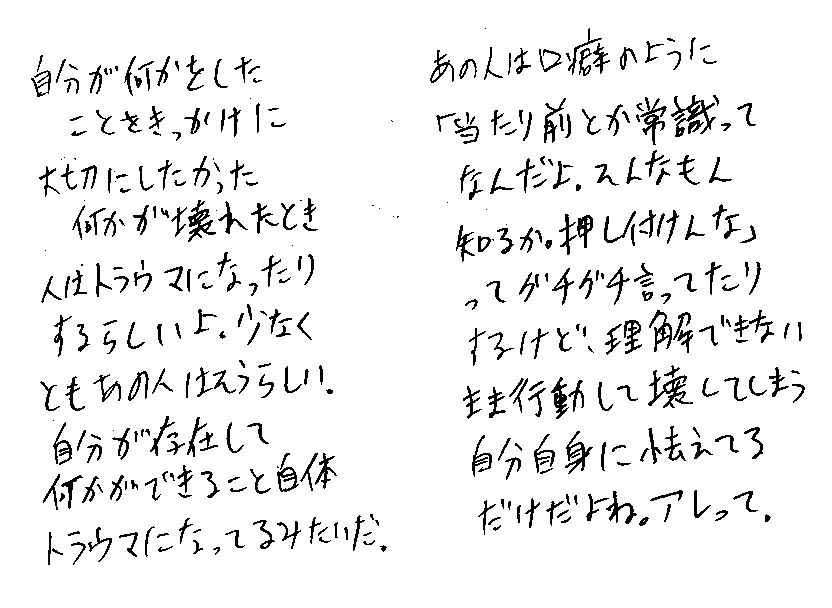 自分が何かをした
ことをきっかけに
大切にしたかった
何かが壊れたとき
人はトラウマになったり
するらしいよ。少なく
ともあの人はそうらしい。
自分が存在して
何かができること自体
トラウマになってるみたいだ。
あの人は口癖のように
「当たり前とか常識って
なんだよ。そんなもん
知るか。押し付けんな」
ってグチグチ言ってたり
するけど、理解できない
まま行動して壊してしまう
自分自身に怯えてる
だけだよね。アレって。